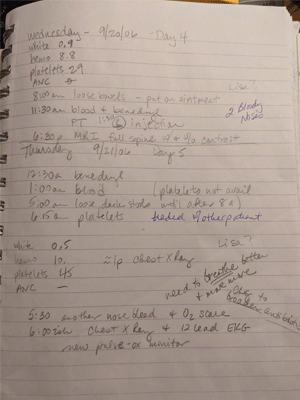 Wednesday - 9/20/06 Day 4
white 0.9
hemo 8.8
platelets 29
ANC - ⊖
Lisa?
8:00am loose bowels - put on ointment
11:30am blood & benedryl
2 Bloody Noses
PT 1:30 injection
6:30p MRI full spine w & w/o contrast
Thursday 9/21/06 Day 5
12:30a benedryl
1:00am blood (platelets not avail
5:00am loose, dark stools until after 8a)
6:15a platelets needed другого patient
Lisa?
white 0.5
hemo 10.
≈1p Chest XRay
platelets 45
ANC —
need to breathe better
& move more
due to
broaden antibiotic
5:30 another nose bleed & O2 scare
6:00ish Chest XRay & 12 lead EKG
new pulse-ox monitor